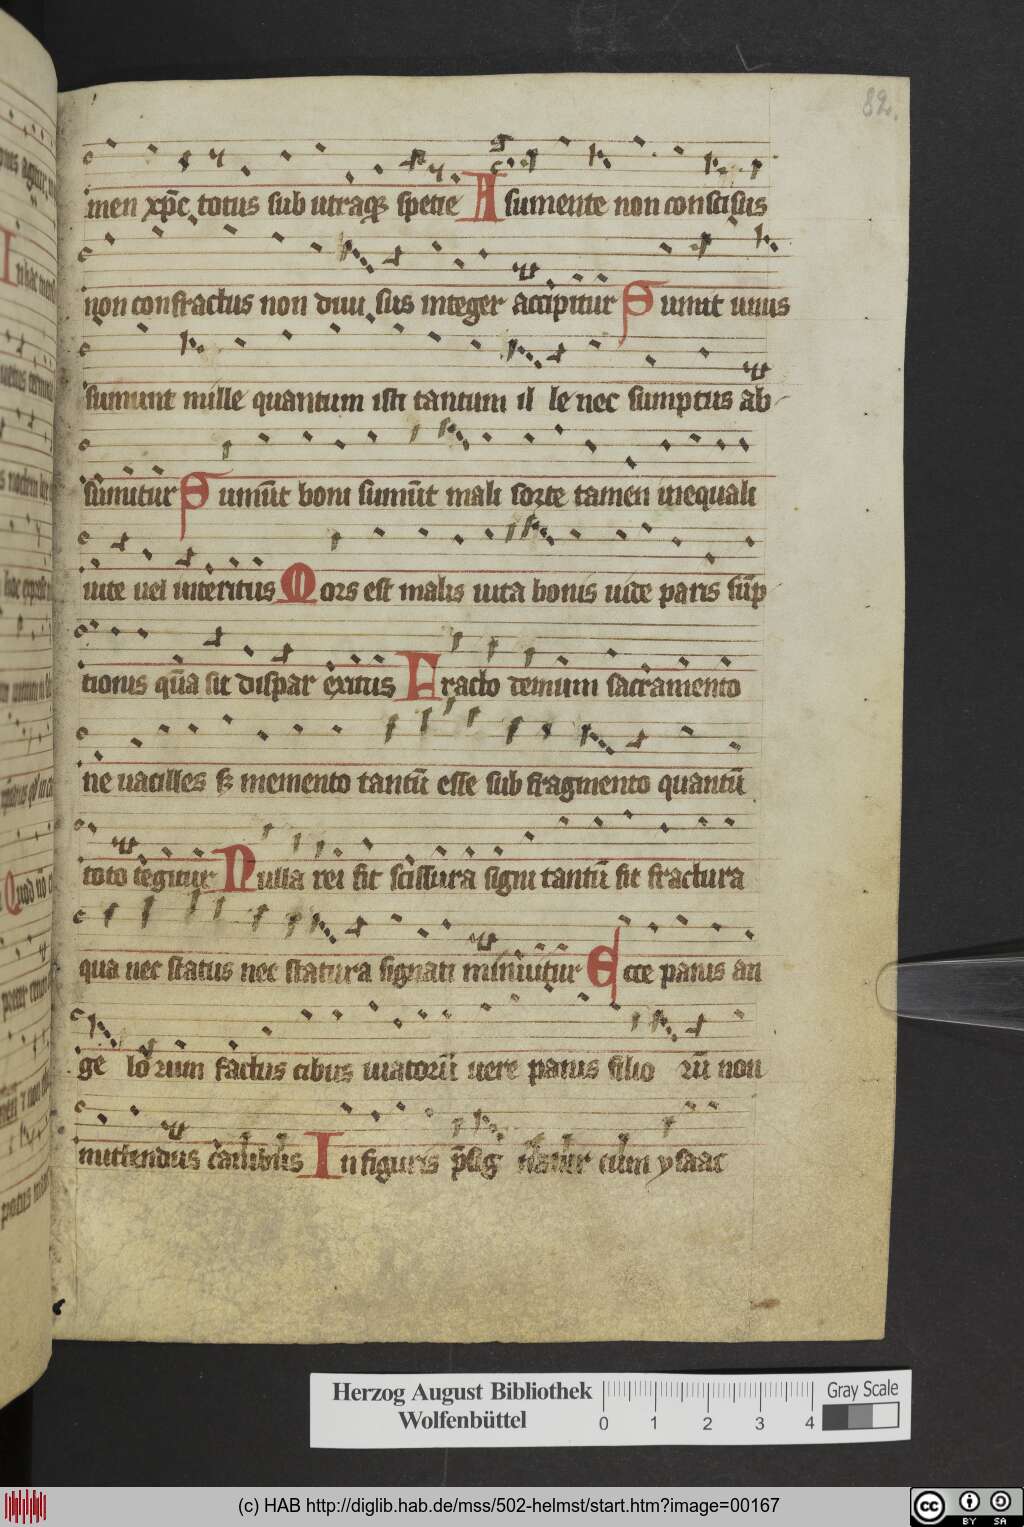 82.
men xp̄c totus sub utraq₃ spetie A sumente non conscisus
non confractus non diui sus integer accipitur S umit unus
sumunt mille quantum isti tantum il le nec sumptus ab
sumitur S umūt boni sumūt mali sorte tamen inequali
uite uel interitus M ors est malis uita bonis uide paris sūp
tionis qūa sit dispar exitus F racto demum sacramento
ne uacilles s₃ memento tantū esse sub fragmento quantū
toto tegitur N ulla rei fit scissura signi tantū fit fractura
qua nec status nec statura signati minuitur E cce panis an
ge lo rum factus cibus uiatorū uere panis filio rū non
mittendus canibus I n figuris cum ysaac
Herzog August Bibliothek
Wolfenbüttel
0 1 2 3 4
Gray Scale
(c) HAB http://diglib.hab.de/mss/502-helmst/start.htm?image=00167
cc BY SA